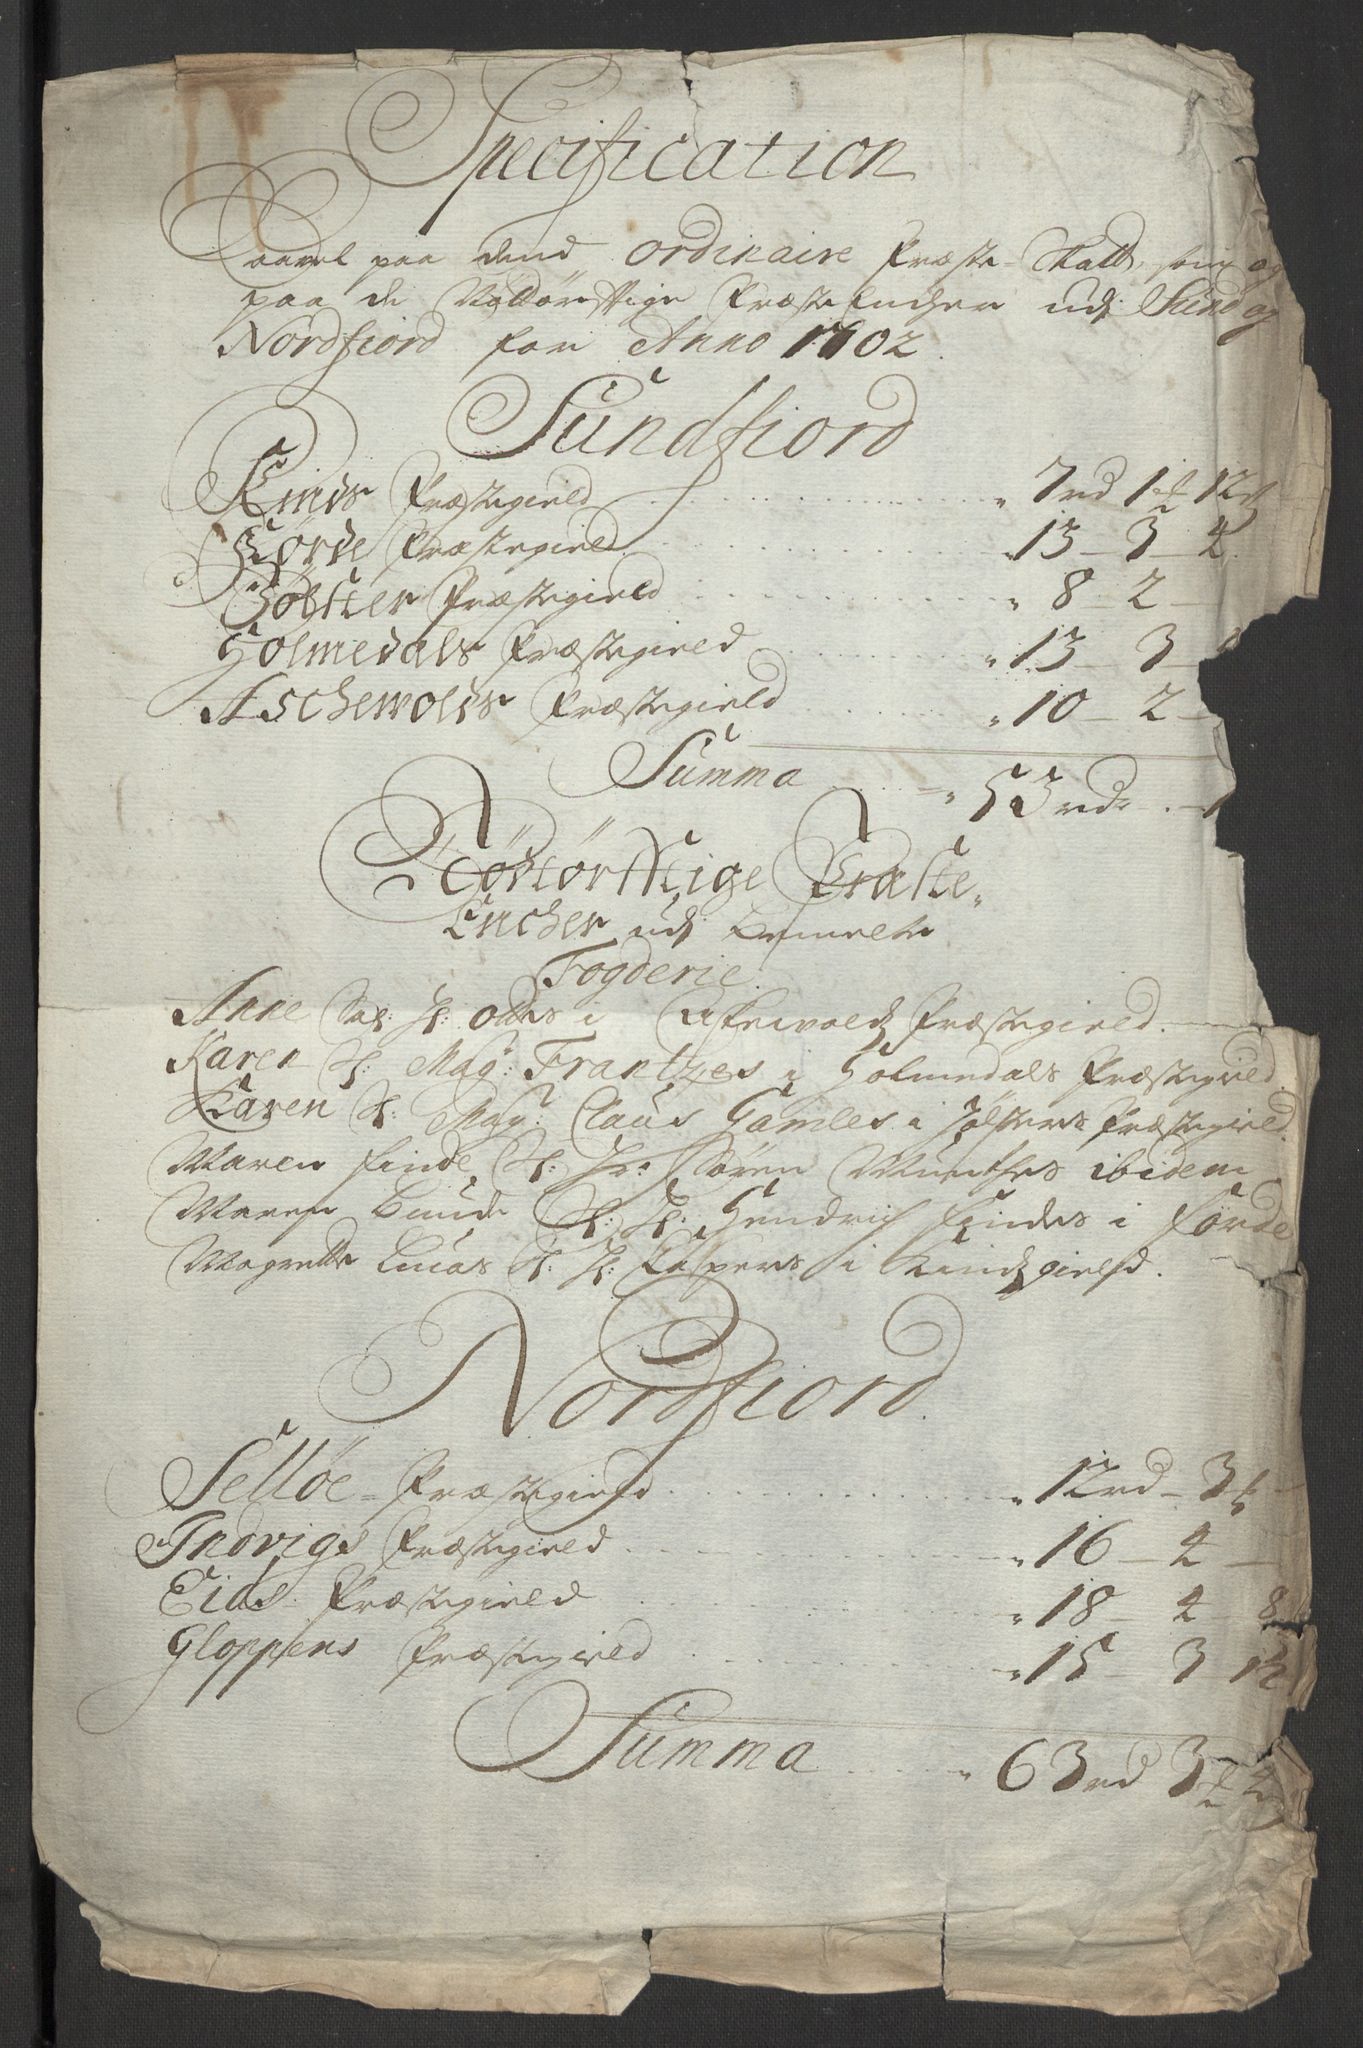 Specification
Saavel paa dend ordinaire Præste-Skatt, som og
paa de Nøttørfftige Præste Encher udj Sund og
Nordfiord for Anno 1702.
Sundfiord
Kinds Præstegield 7rd 1 12
Førde Præstegield 13 3 4
Jølster Præstegield 8 2
Holmedals Præstegield 13 3
Aschevolds Præstegield 10 2
Summa 53 rdr
Nøttørfftige Præste-
Encher udj bemelte
Fogderie.
Anne Sal: H: Ottes i Askevolds Præstegield.
Karen S: Mag: Frantzes i Holmedals Præstegield.
Karen S: Mag: Claus Gamles i Jølsters Præstegield.
Maren Finde S: Hr: Søren Munthes ibidem
Maren Bunde S: H: Hendrich Findes i Førde
Magrette S: H: Caspers i Kindsgield.
Nordfiord.
Selløe Præstegield 12rd 3
Indvigs Præstegield 16 4
Eids Præstegield 18 4 8
Gloppens Præstegield 15 3 12
Summa 63rd 3